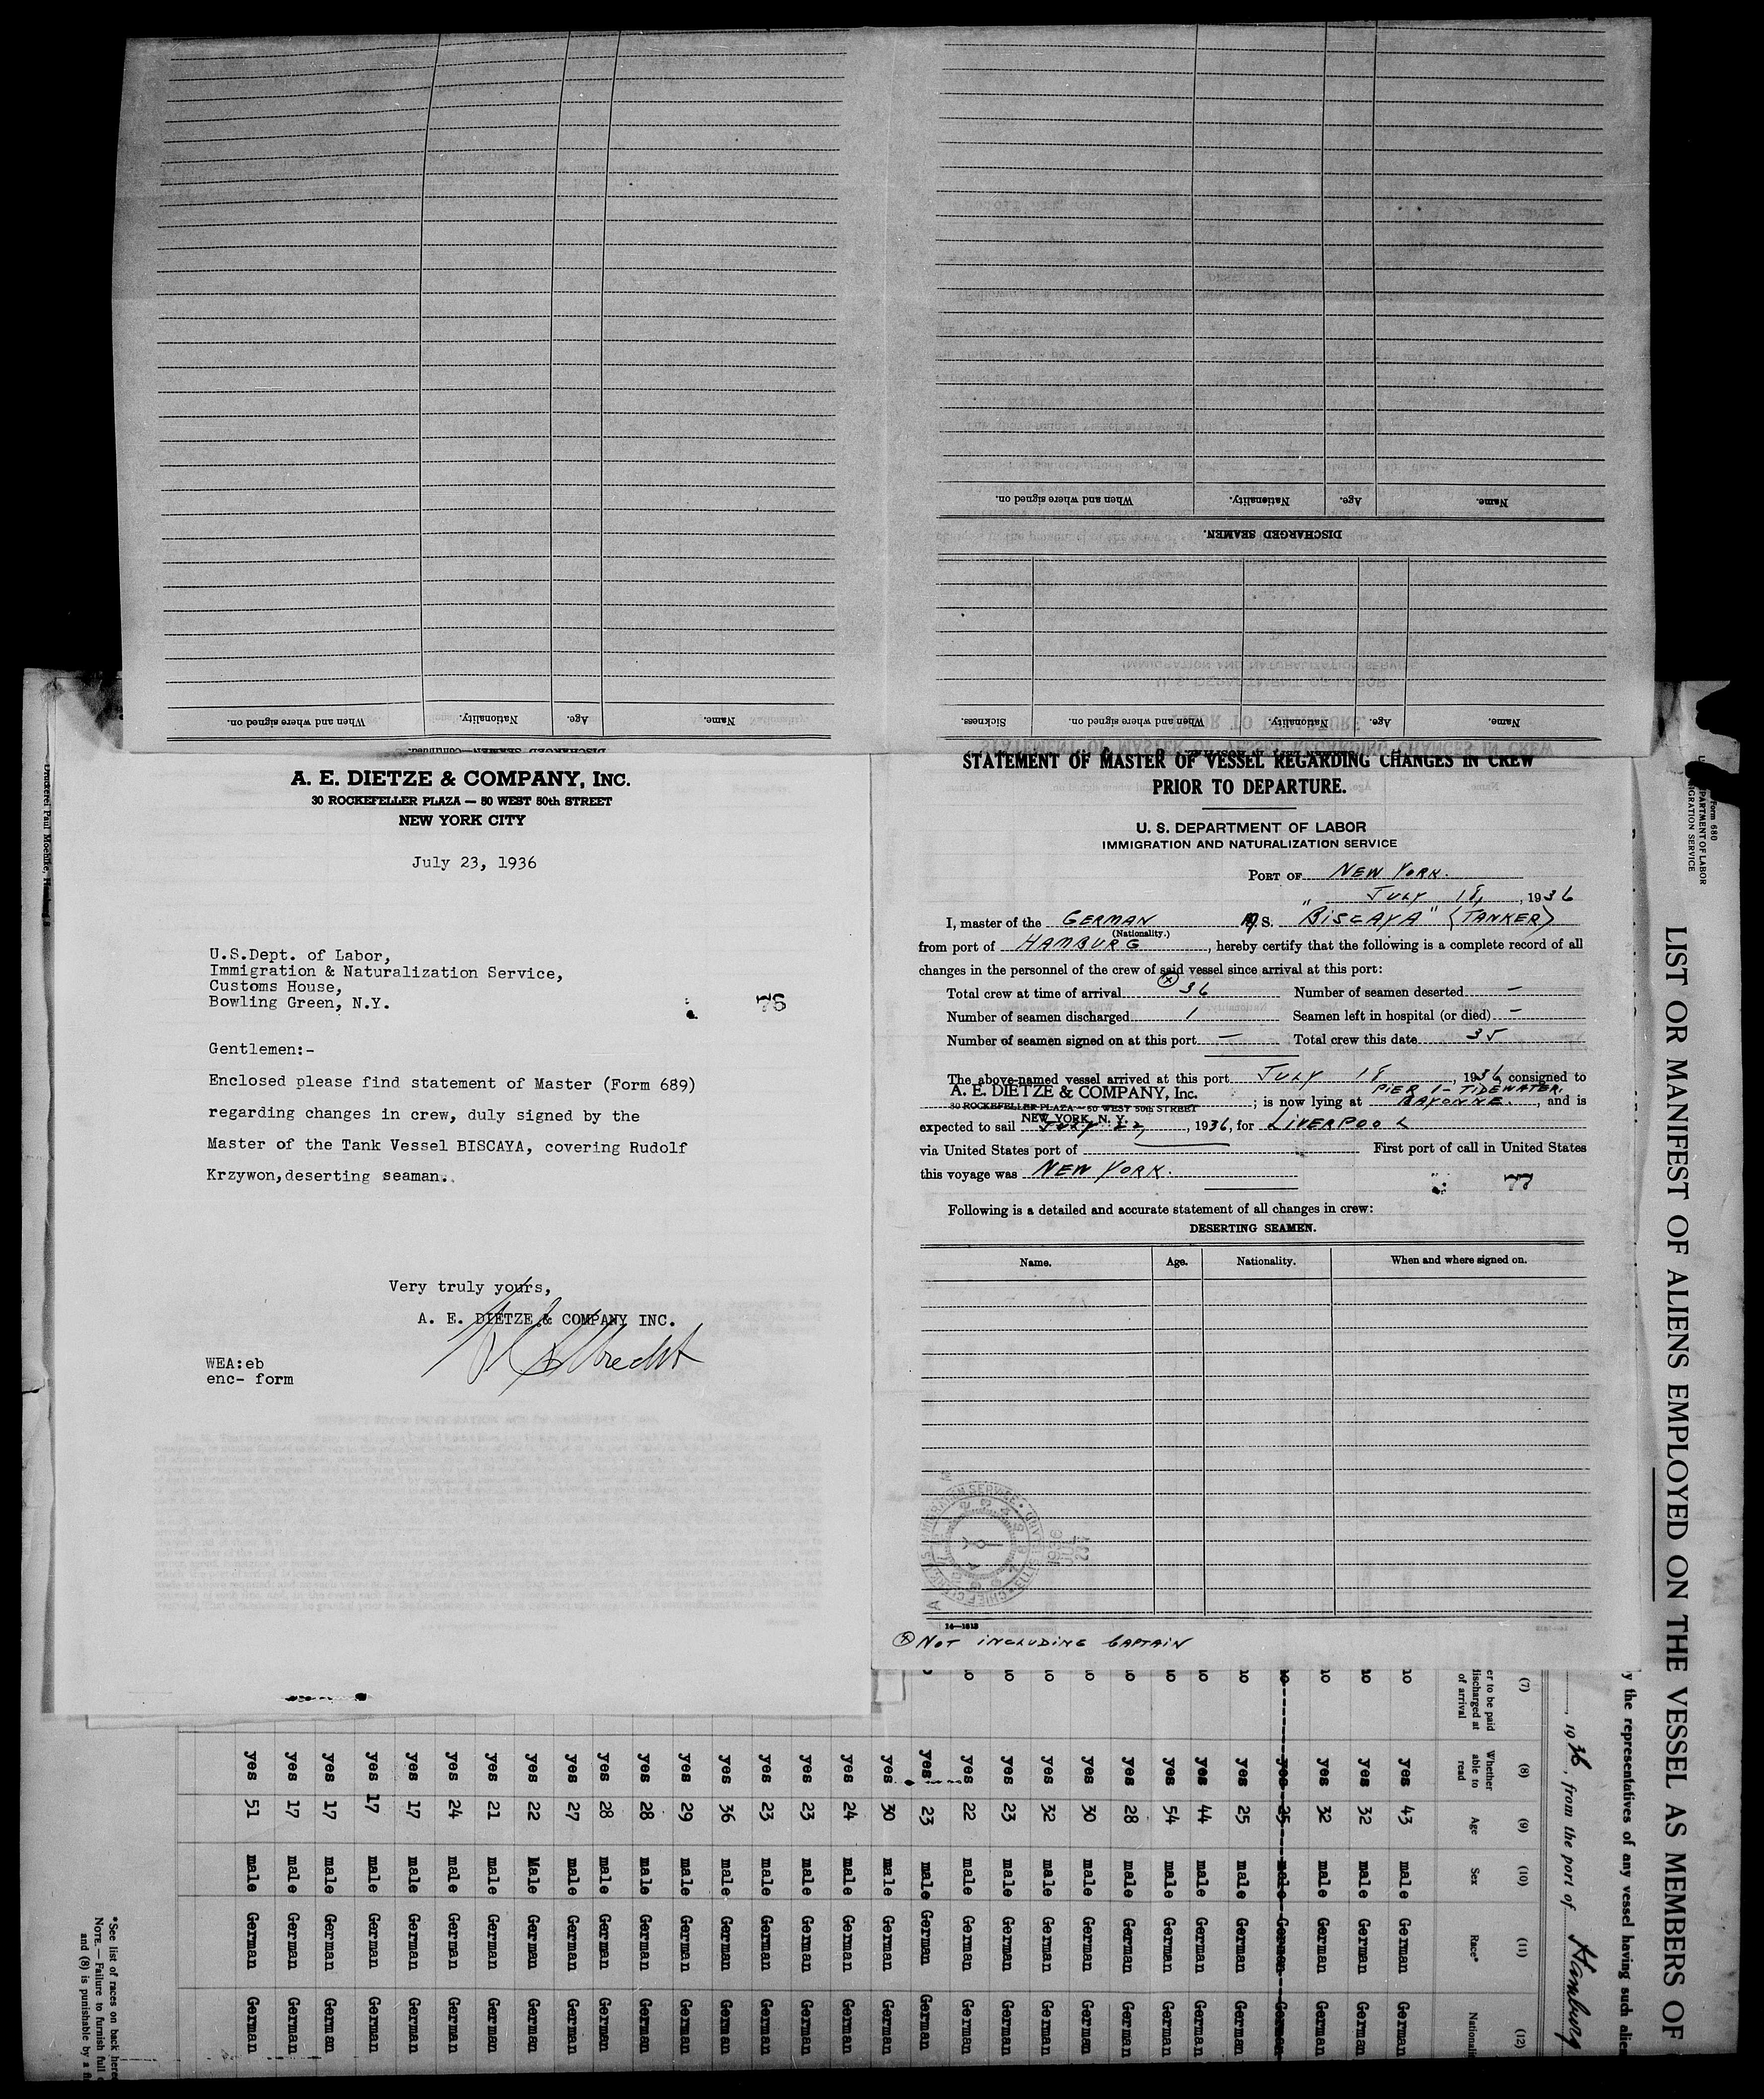 When and where signed on.
Nationality.
Age.
Name.
DISCHARGED SEAMEN.
Sickness.
When and where signed on.
Nationality.
Age.
Name.
When and where signed on.
Nationality.
Age.
Name.
DISCHARGED SEAMEN—Continued.
A. E. DIETZE & COMPANY, INC.
30 ROCKEFELLER PLAZA — 50 WEST 50th STREET
NEW YORK CITY
July 23, 1936
U.S.Dept. of Labor,
Immigration & Naturalization Service,
Customs House,
Bowling Green, N.Y.
76
Gentlemen:-
Enclosed please find statement of Master (Form 689)
regarding changes in crew, duly signed by the
Master of the Tank Vessel BISCAYA, covering Rudolf
Krzywon, deserting seaman.
Very truly yours,
A. E. DIETZE & COMPANY INC.
WEA:eb
enc- form
STATEMENT OF MASTER OF VESSEL REGARDING CHANGES IN CREW
PRIOR TO DEPARTURE.
U. S. DEPARTMENT OF LABOR
IMMIGRATION AND NATURALIZATION SERVICE
PORT OF NEW YORK.
JULY 18, 1936
I, master of the GERMAN M.S. "BISCAYA" (TANKER)
(Nationality.)
from port of HAMBURG, hereby certify that the following is a complete record of all
changes in the personnel of the crew of said vessel since arrival at this port:
Total crew at time of arrival (x) 36 Number of seamen deserted —
Number of seamen discharged 1 Seamen left in hospital (or died) —
Number of seamen signed on at this port — Total crew this date 35
The above-named vessel arrived at this port JULY 18, 1936, consigned to
A. E. DIETZE & COMPANY, Inc.
30 ROCKEFELLER PLAZA — 50 WEST 50th STREET
NEW YORK, N. Y.
; is now lying at PIER 1 - TIDEWATER. BAYONNE., and is
expected to sail JULY 22, 1936, for LIVERPOOL
via United States port of First port of call in United States
this voyage was NEW YORK.
77
Following is a detailed and accurate statement of all changes in crew:
DESERTING SEAMEN.
Name. Age. Nationality. When and where signed on.
14—1613
(x) NOT INCLUDING CAPTAIN
Form 680
LIST OR MANIFEST OF ALIENS EMPLOYED ON THE VESSEL AS MEMBERS OF
y the representatives of any vessel having such alien
, 1936, from the port of Hamburg
(7) (8) (9) (10) (11) (12)
er to be paid
discharged at
of arrival
Whether
able to
read
Age
Sex
Race*
yes 43 male German German
yes 32 male German German
yes 32 male German German
yes 25 male German German
yes 25 male German German
yes 44 male German German
yes 54 male German German
yes 28 male German German
yes 30 male German German
yes 32 male German German
yes 23 male German German
yes 22 male German German
yes 23 male German German
yes 30 male German German
yes 24 male German German
yes 23 male German German
yes 23 male German German
yes 36 male German German
yes 29 male German German
yes 28 male German German
yes 28 male German German
yes 27 male German German
yes 22 Male German German
yes 21 male German German
yes 24 male German German
yes 17 male German German
yes 17 male German German
yes 17 male German German
yes 17 male German German
yes 51 male German German
*See list of races on back here
NOTE.—Failure to furnish full
and (8) is punishable by a